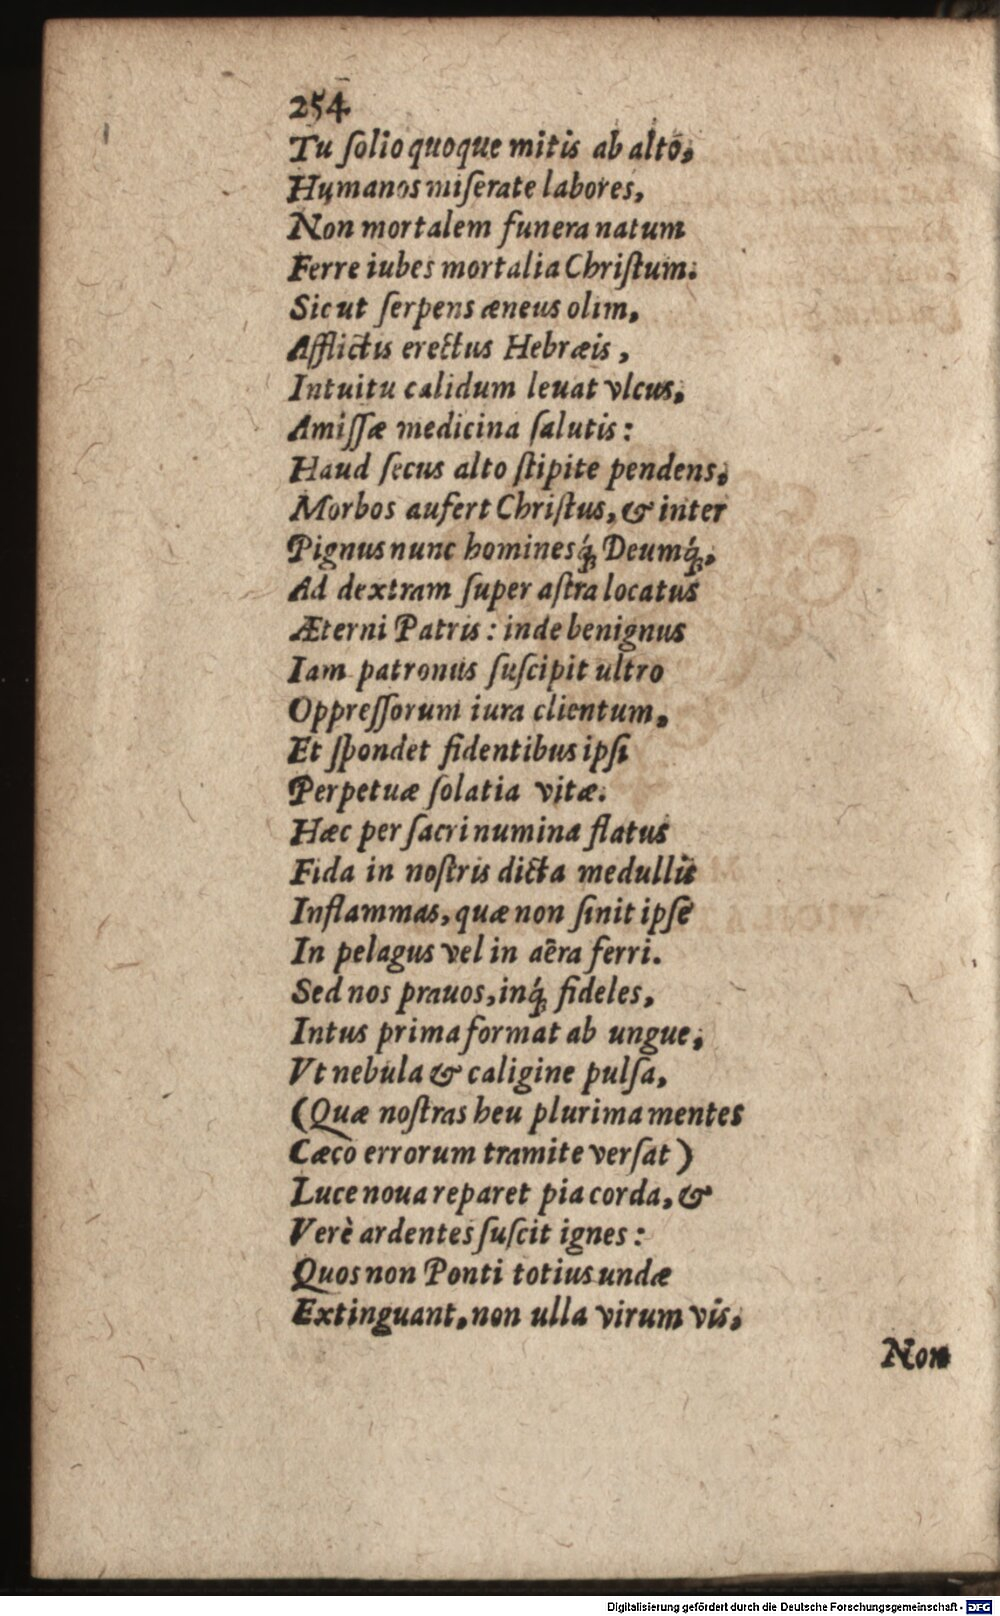 254
Tu ſolio quoque mitis ab alto,
Humanos miſerate labores,
Non mortalem funera natum
Ferre iubes mortalia Chriſtum.
Sicut ſerpens æneus olim,
Afflictis erectus Hebræis,
Intuitu calidum leuat vlcus,
Amiſſæ medicina ſalutis:
Haud ſecus alto ſtipite pendens,
Morbos aufert Chriſtus, & inter
Pignus nunc hominesq́; Deumq́;,
Ad dextram ſuper aſtra locatus
Æterni Patris: inde benignus
Iam patronus ſuſcipit ultro
Oppreſſorum iura clientum,
Et ſpondet fidentibus ipſi
Perpetuæ ſolatia vitæ.
Hæc per ſacri numina flatus
Fida in noſtris dicta medullis
Inflammas, quæ non ſinit ipſe
In pelagus vel in aëra ferri.
Sed nos prauos, inq́; fideles,
Intus prima format ab ungue,
Vt nebula & caligine pulſa,
(Quæ noſtras heu plurima mentes
Cæco errorum tramite verſat)
Luce noua reparet pia corda, &
Verè ardentes ſuſcit ignes:
Quos non Ponti totius undæ
Extinguant, non ulla virum vis,
Non
Digitalisierung gefördert durch die Deutsche Forschungsgemeinschaft - DFG